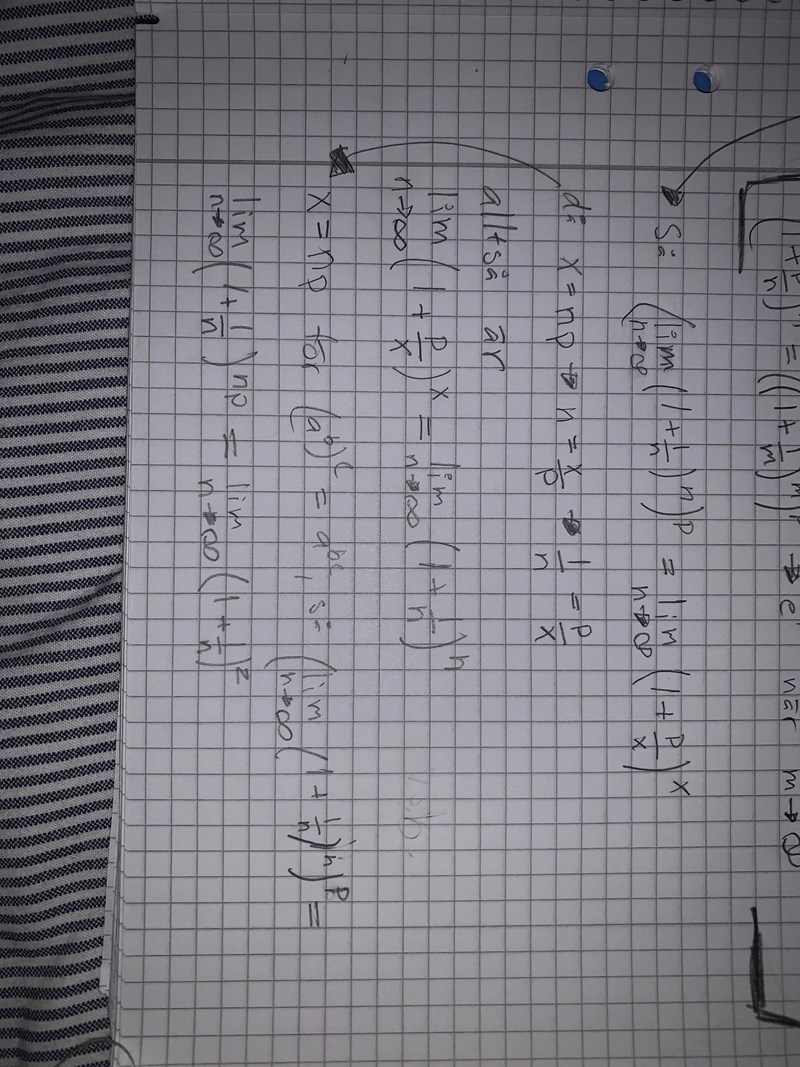 (1+p/n) = ((1+1/m)^m)^p → e^p när m→∞
Så (lim n→∞ (1+1/n)^n)^p = lim n→∞ (1+p/x)^x
då x=np → n=x/p → 1/n = p/x
alltså är
lim n→∞ (1+p/x)^x = lim n→∞ (1+1/n)^n
x=np för (a^b)^c = a^bc, så (lim n→∞ (1+1/n)^n)^p =
lim n→∞ (1+1/n)^np = lim n→∞ (1+1/n)^z